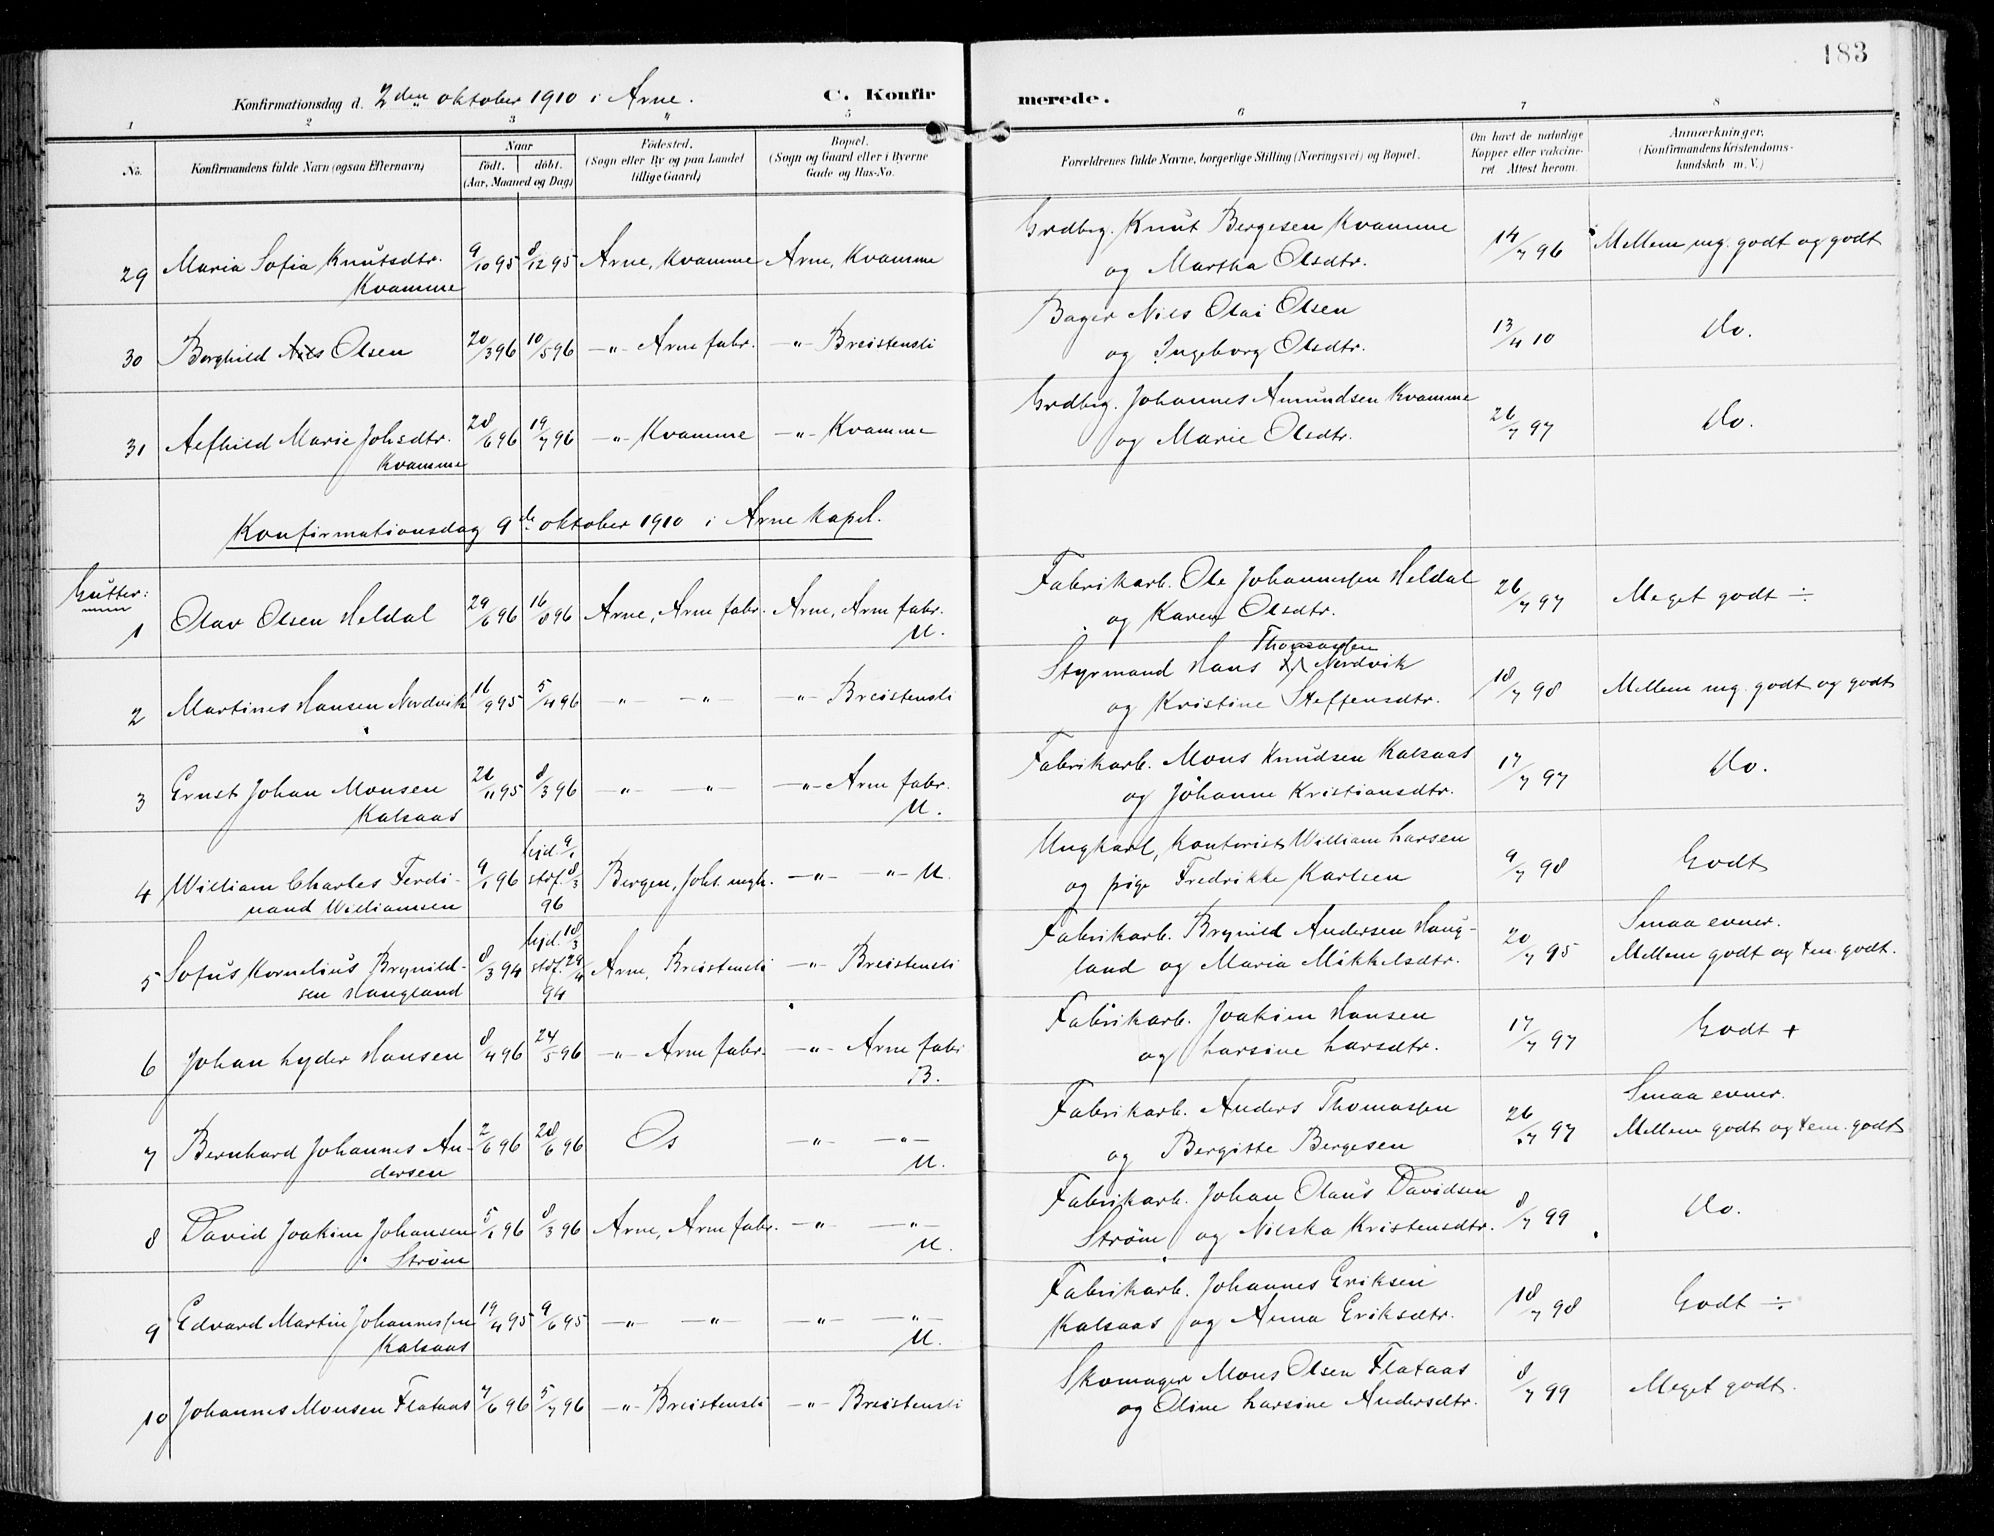 183
Konfirmationsdag d. 2den oktober 1910 i Arne. C. Konfirmerede.
1 2 3 4 5 6 7 8
No. Konfirmandens fulde Navn (ogsaa Efternavn) Naar født. døbt. (Aar, Maaned og Dag) Fødested. (Sogn eller By og paa Landet tillige Gaard) Bopæl. (Sogn og Gaard eller i Byerne Gade og Hus-No. Forældrenes fulde Navne, borgerlige Stilling (Næringsvei) og Bopæl. Om havt de naturlige Kopper eller vakcineret Attest herom. Anmærkninger. (Konfirmandens Kristendomskundskab m. V.)
29 Maria Sofia Knutsdtr. Kvamme 9/10 95 8/12 95 Arne, Kvamme Arne, Kvamme Grdbrg. Knut Bergesen Kvamme og Martha Olsdtr. 14/7 96 Mellem mg. godt og godt
30 Borghild Nils Olsen 20/3 96 10/5 96 -"- Arne fabr. -"- Breistensli Bager Nils Olai Olsen og Ingeborg Olsdtr. 13/4 10 Do.
31 Alfhild Marie Johsdtr. Kvamme 28/6 96 19/7 96 -"- Kvamme -"- Kvamme Grdbrg. Johannes Amundsen Kvamme og Marie Olsdtr. 26/7 97 Do.
Konfirmationsdag 9de oktober 1910 i Arne Kapel.
Gutter:
1 Olav Olsen Heldal 29/6 96 16/8 96 Arne, Arne fabr. Arne, Arne fabr. U. Fabrikarb. Ole Johannessen Heldal og Karen Olsdtr. 26/7 97 Meget godt ÷
2 Martines Hansen Nordvik 16/9 95 5/4 96 -"- -"- -"- Breistensli Styrmand Hans Thomassen Nordvik og Kristine Steffensdtr. 18/7 98 Mellem mg. godt og godt
3 Ernst Johan Monsen Kalsaas 26/11 95 8/3 96 -"- -"- -"- Arne fabr. U. Fabrikarb. Mons Knudsen Kalsaas og Johanne Kristiansdtr. 17/7 97 Do.
4 William Charles Ferdinand Williamsen 9/1 96 hjd. 9/1 stdf. 8/3 96 Bergen, Joh. mgh. -"- -"- U. Ungkarl, Kontorist William Larsen og pige Fredrikke Karlsen 9/7 98 Godt
5 Sofus Kornelius Brynildsen Haugland 8/3 94 hjd. 18/3 stdf. 29/4 94 Arne, Breistensli -"- Breistensli Fabrikarb. Brynild Andersen Haugland og Maria Mikkelsdtr. 20/7 95 Smaa evner. Mellem godt og tem. godt.
6 Johan Lyder Hansen 8/4 96 24/5 96 -"- Arne fabr. -"- Arne fabr B. Fabrikarb. Joakim Hansen og Larsine Larsdtr. 17/7 97 Godt +
7 Bernhard Johannes Andersen 2/6 96 28/6 96 Os -"- -"- U. Fabrikarb. Anders Thomassen og Bergitte Bergesen 26/7 97 Smaa evner. Mellem godt og tem. godt
8 David Joakim Johansen Strøm 5/1 96 8/3 96 Arne, Arne fabr. -"- -"- U. Fabrikarb. Johan Olaus Davidsen Strøm og Nilska Kristensdtr. 8/7 99 Do.
9 Edvard Martin Johannessen Kalsaas 19/4 95 9/6 95 -"- -"- -"- -"- U. Fabrikarb. Johannes Eriksen Kalsaas og Anna Eriksdtr. 18/7 98 Godt ÷
10 Johannes Monsen Flataas 7/6 96 5/7 96 -"- Breistensli -"- Breistensli Skomager Mons Olsen Flataas og Oline Larsine Andersdtr. 8/7 99 Meget godt.